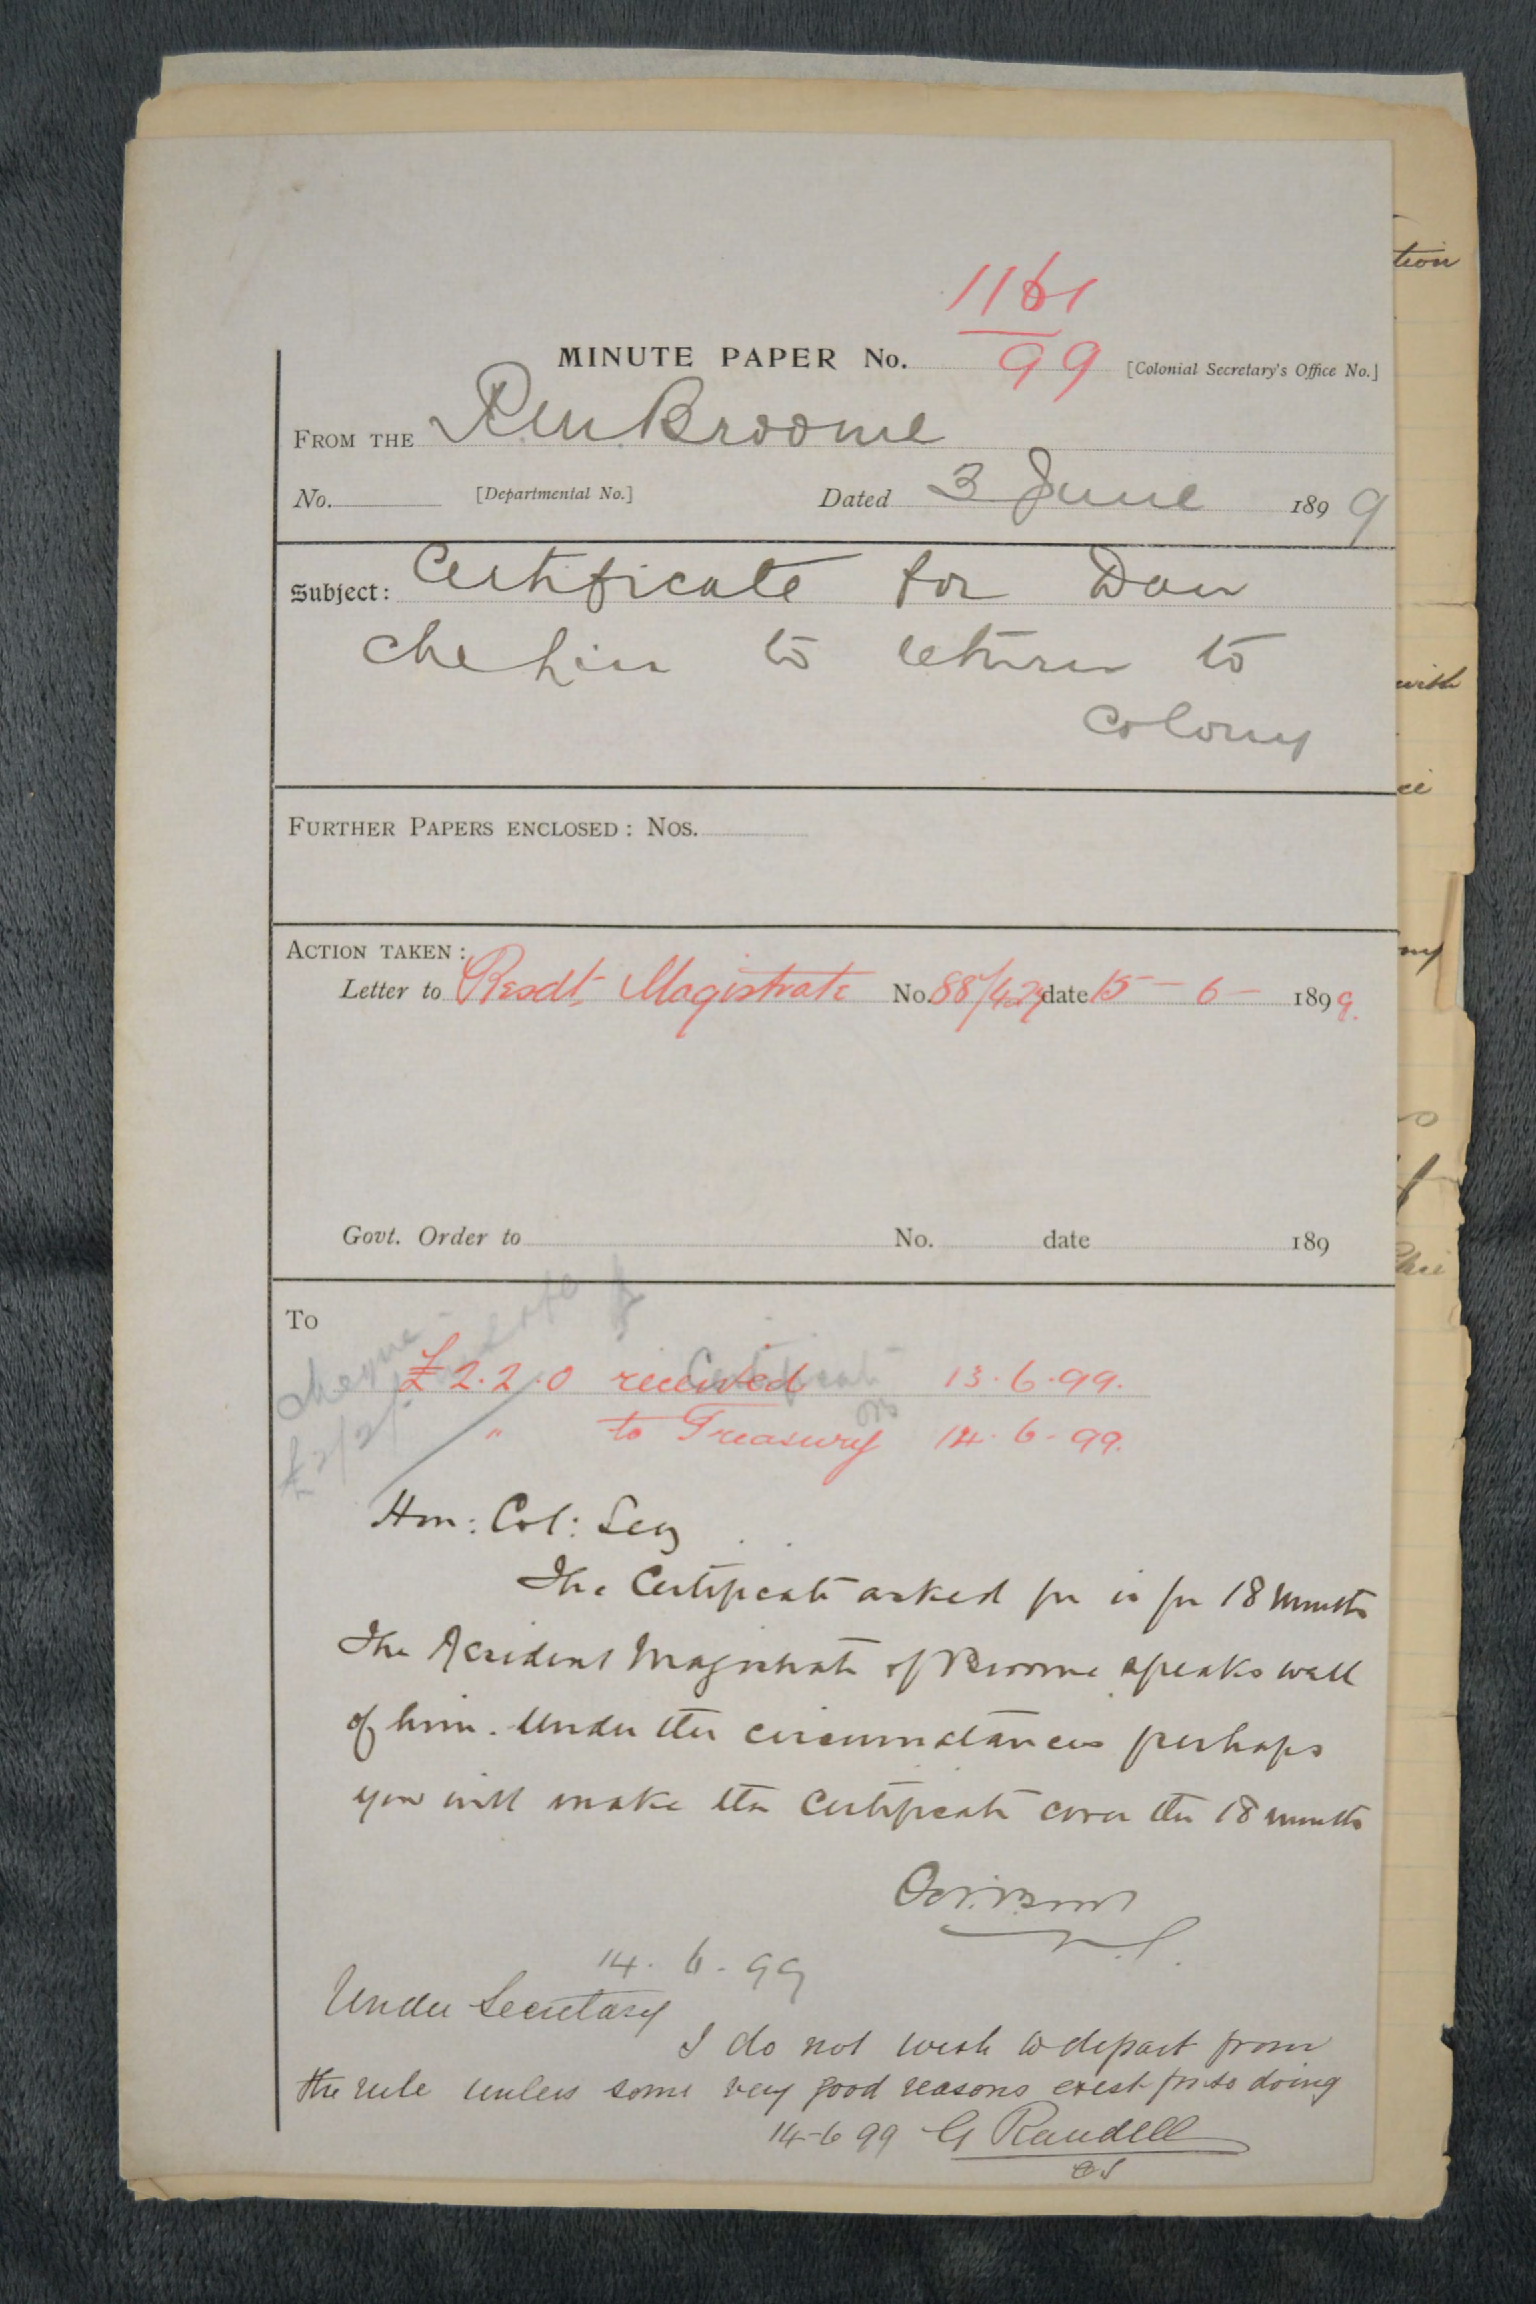 1161
99
MINUTE PAPER No. [Colonial Secretary's Office No.]
FROM THE R.M. Broome
No. [Departmental No.] Dated 3 June 1899
Subject: Certificate for Dan
che hin to return to
Colony
FURTHER PAPERS ENCLOSED: Nos.
ACTION TAKEN:
Letter to Resdt. Magistrate No. 88/429 date 15-6-1899.
Govt. Order to No. date 189
To
cheque
£2/2/-
Certificate
£2.2.0 received 13.6.99.
" to Treasury 14.6.99.
Hon: Col: Secy
The Certificate asked for is for 18 months
The Resident Magistrate of Broome speaks well
of him. Under the circumstances perhaps
you will make the Certificate cover the 18 months
14.6.99
Under Secretary
I do not wish to depart from
the rule unless some very good reasons exist for so doing
14-6 99 G Randell
CS
tion
with
ce
ny